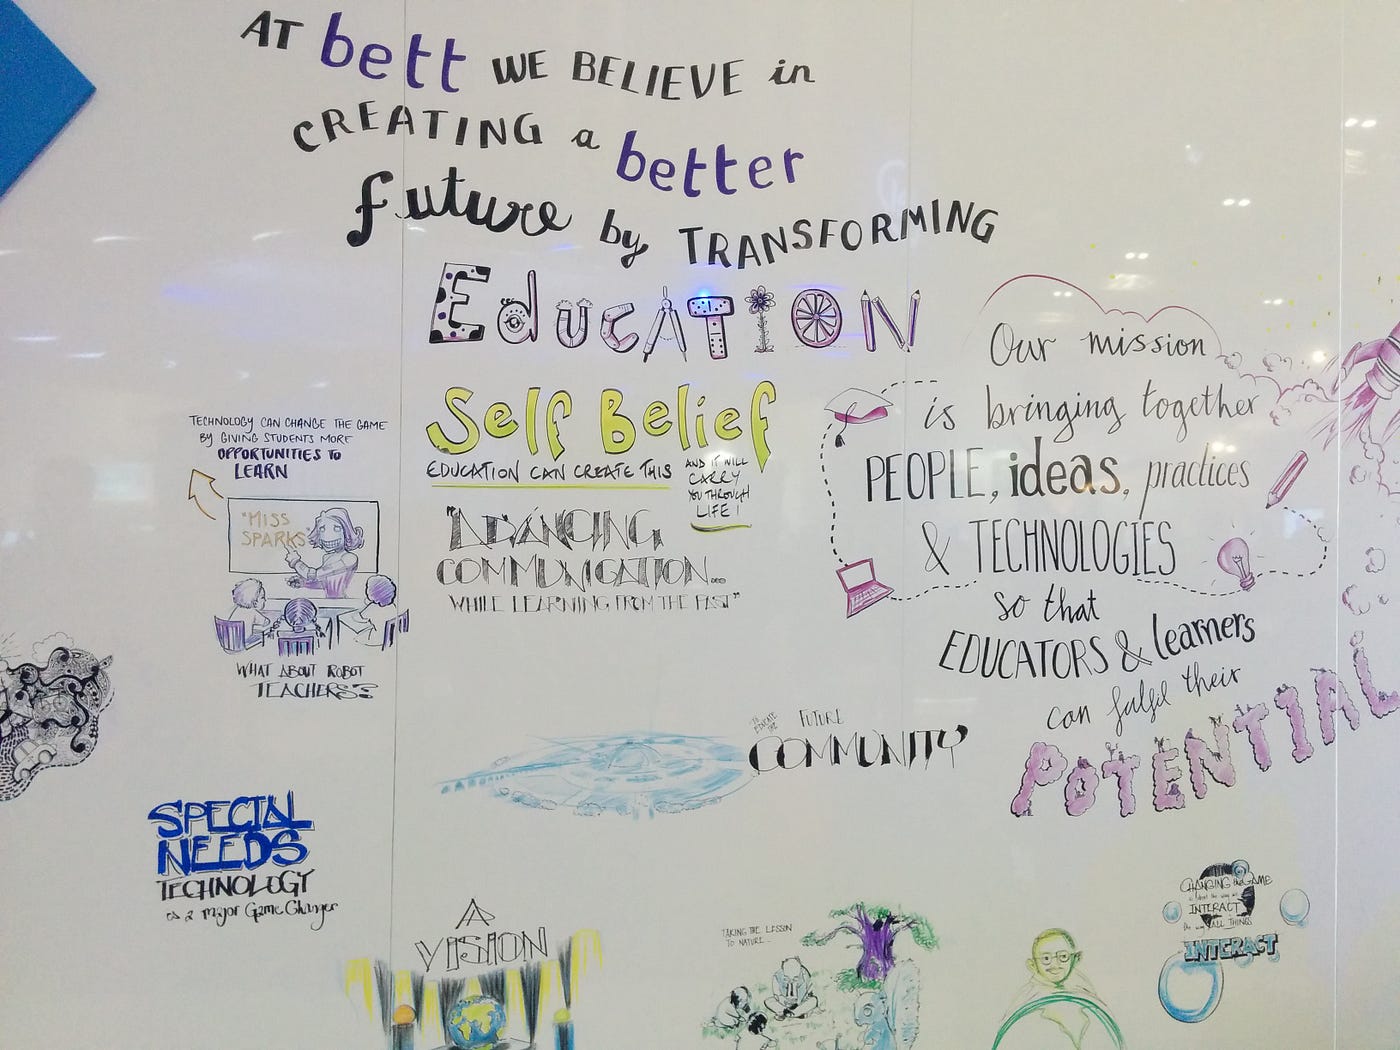 AT bett WE BELIEVE in
CREATING a better
future by TRANSFORMING
EducATION
Self Belief
EDUCATION CAN CREATE THIS
AND IT WILL
CARRY
YOU THROUGH
LIFE!
"ADVANCING
COMMUNICATION...
WHILE LEARNING FROM THE PAST"
TECHNOLOGY CAN CHANGE THE GAME
BY GIVING STUDENTS MORE
OPPORTUNITIES TO
LEARN
"MISS
SPARKS"
WHAT ABOUT ROBOT
TEACHERS?
Our mission
is bringing together
PEOPLE, ideas, practices
& TECHNOLOGIES
so that
EDUCATORS & learners
can fulfil their
POTENTIAL
FUTURE
COMMUNITY
SPECIAL
NEEDS
TECHNOLOGY
is a major Game Changer
A
VISION
TAKING THE LESSON
TO NATURE...
CHANGING the GAME
is about the way we
INTERACT
the way ALL THINGS
INTERACT